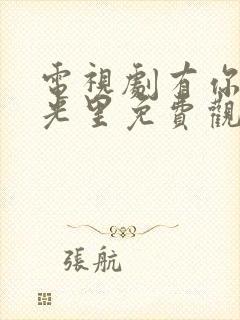 電視劇有你
光里免費觀
張航